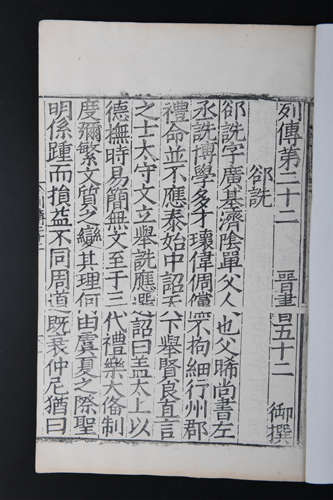 列傳第二十二 晉書五十二 御撰
郤詵
郤詵字廣基濟陰單父人也父晞尚書左
丞詵博學多才瓌偉倜儻不拘細行州郡
禮命並不應泰始中詔天下舉賢良直言
之士太守文立舉詵應選詔曰蓋太上以
德撫時易簡無文至于三代禮樂大備制
度彌繁文質之變其理何由虞夏之際聖
明係踵而損益不同周道既衰仲尼猶曰